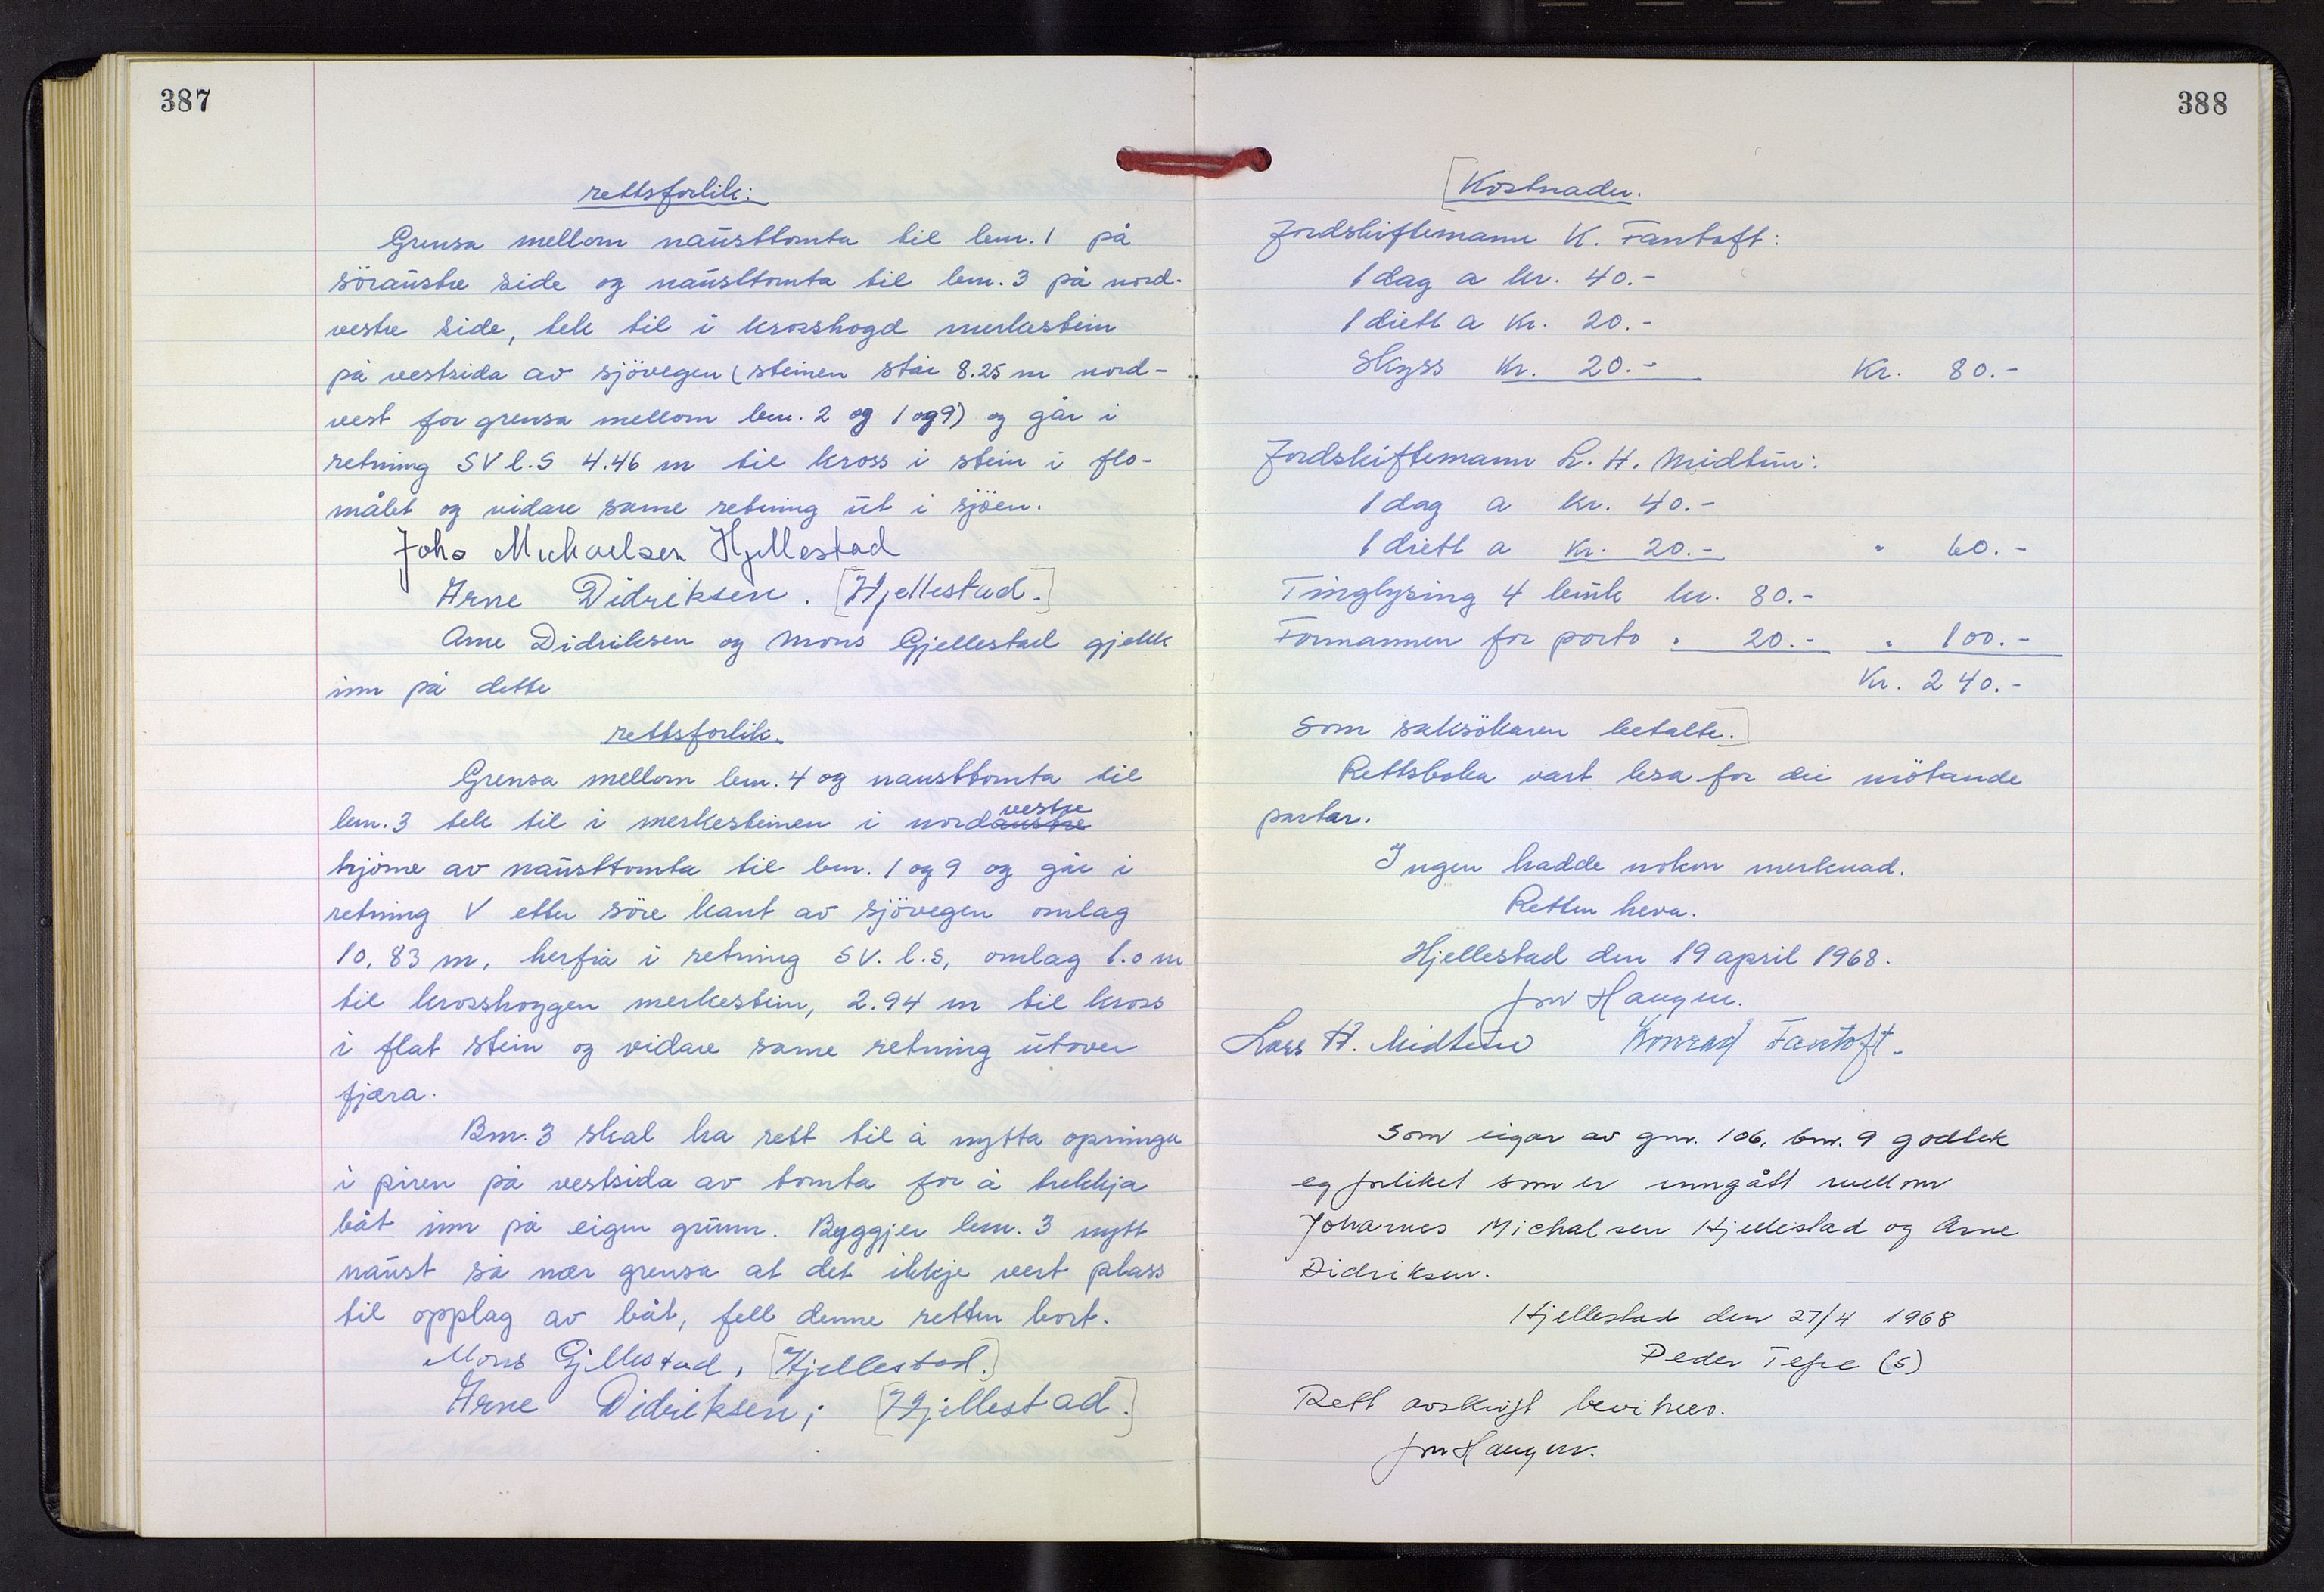 387
rettsforlik:
Grensa mellom nausttomta til bnr. 1 på
söraustre side og nausttomta til bnr. 3 på nord-
vestre side, tek til i krosshogd merkestein
på vestsida av sjövegen (steinen står 8.25 m nord-
vest for grensa mellom bnr. 2 og 1 og 9) og går i
retning SV l.S 4.46 m til kross i stein i flo-
målet og vidare same retning ut i sjöen.
Johs Michaelsen Hjellestad
Arne Didriksen. [Hjellestad.]
Arne Didriksen og Mons Gjellestad gjekk
inn på dette
rettsforlik.
Grensa mellom bnr. 4 og nausttomta til
vestre
bnr. 3 tek til i merkesteinen i nordaustre
hjörne av nausttomta til bnr. 1 og 9 og går i
retning V etter söre kant av sjövegen omlag
10,83 m, herfrå i retning SV. l.S, omlag 1.0 m
til krosshoggen merkestein, 2.94 m til kross
i flat stein og vidare same retning utover
fjæra.
Bnr. 3 skal ha rett til å nytta opninga
i piren på vestsida av tomta for å trekkja
båt inn på eigen grunn. Byggjer bnr. 3 nytt
naust så nær grensa at det ikkje vert plass
til opplag av båt, fell denne retten bort.
Mons Gjellestad, [Hjellestad.]
Arne Didriksen; [Hjellestad.]
388
[Kostnader.
Jordskiftemann K. Fantoft:
1 dag a kr. 40.-
1 diett a kr. 20.-
Skyss kr. 20.- Kr. 80.-
Jordskiftemann L. H. Midtun:
1 dag a kr. 40.-
1 diett a kr. 20.- " 60.-
Tinglysing 4 bruk kr. 80.-
Formannen for porto " 20.- " 100.-
Kr. 240.-
som saksökaren betalte.]
Rettsboka vart lesa for dei mötande
partar.
Ingen hadde nokon merknad.
Retten heva.
Hjellestad den 19 april 1968.
Jon Haugen.
Lars H. Midtun Konrad Fantoft.
Som eigar av gnr. 106, bnr. 9 godtek
eg forliket som er inngått mellom
Johannes Michalsen Hjellestad og Arne
Didriksen.
Hjellestad den 27/4 1968
Peder Tepe (s)
Rett avskrift bevitnes.
Jon Haugen.